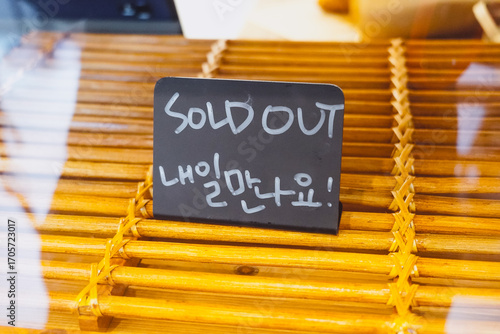 SOLD OUT
내일만나요!
1705723017